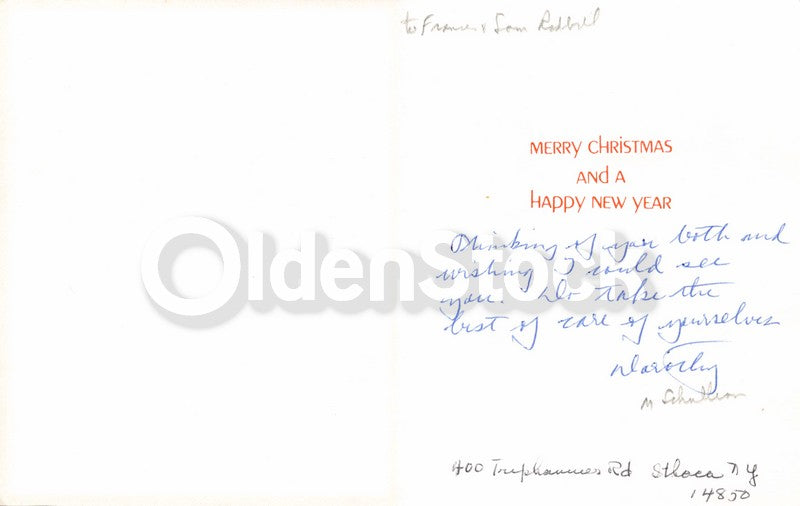 to Frances & Sam Rodbell
MERRY CHRISTMAS
AND A
HAPPY NEW YEAR
Thinking of you both and
wishing I could see
you. Do take the
best of care of yourselves
Dorothy
M
400 Triphammer Rd Ithaca NY
14850
OldenStock